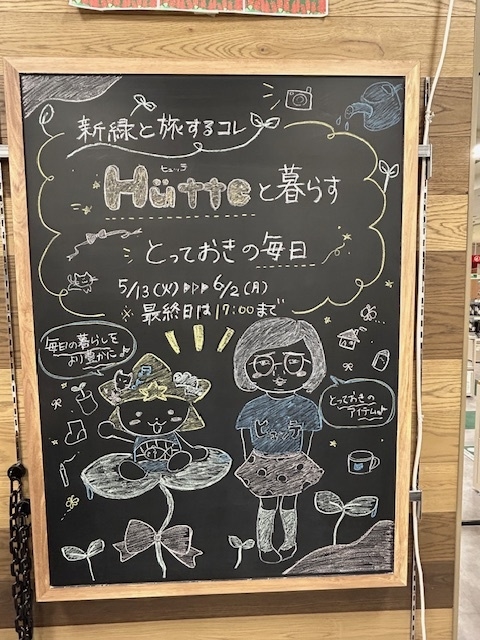 新緑と旅するコレ
ヒュッテ
Hütteと暮らす
とっておきの毎日
5/13(火)▷▷▷6/2(月)
※最終日は17:00まで
毎日の暮らしを
より豊かに♪
とっておきの
アイテム♪
ヒュッテ